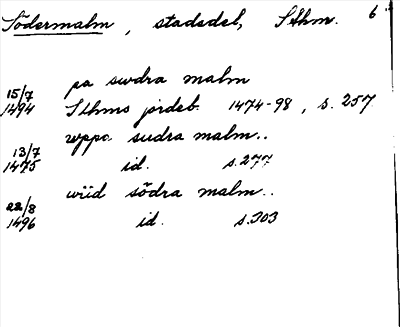 Södermalm, stadsdel, Sthm. 6
pa swdra malm
15/7
1494 Sthms jordeb. 1474-98, s. 257
wppa sudra malm..
13/7
1475 id. s. 277
wiid södra malm..
22/8
1496 id. s. 303